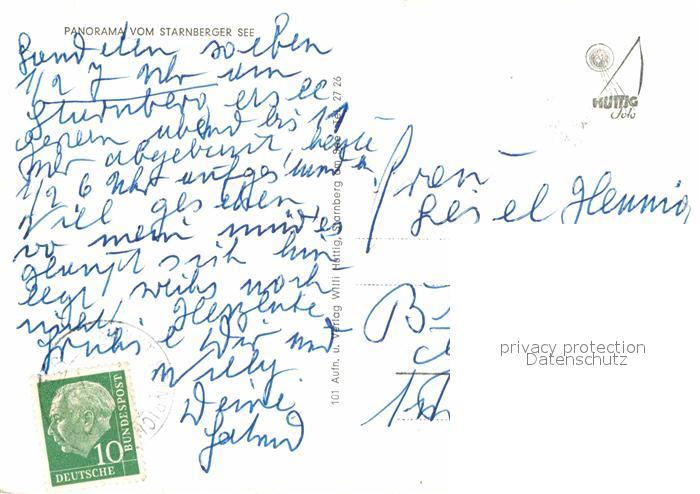 PANORAMA VOM STARNBERGER SEE
Landeten soeben
1/2 7 Uhr am
Starnberg ersee
gestern abend erst 11
Uhr abgebraust, heute
1/2 6 Uhr aufgestanden
Viel gesehen,
wo mein müdes
Haupt sich hin
legt, weihs noch
nicht. Herzliche
Grühse Dir und
Willy.
Deine
101 Aufn. u. Verlag Willi Hüttig, Starnberg am See 27 26
HÜTTIG
Foto
Frau
Liesel Hennig
privacy protection
Datenschutz
10
DEUTSCHE
BUNDESPOST